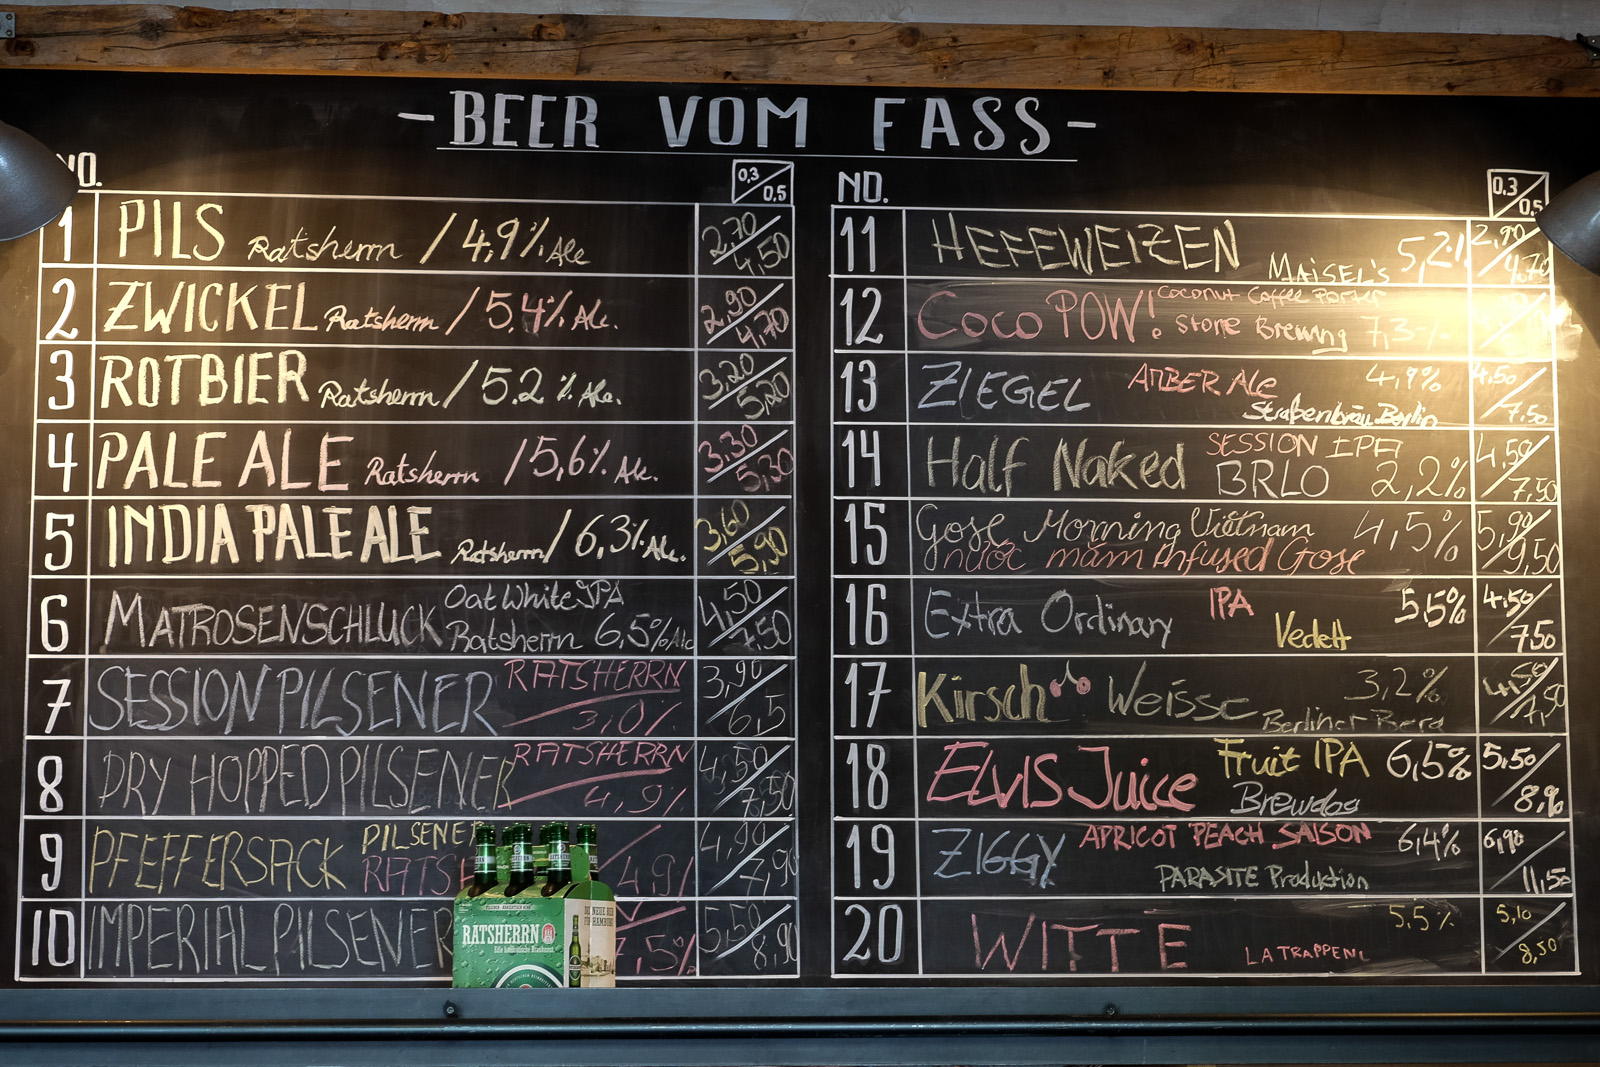 - BEER VOM FASS -
NO.
0,3/0,5
1 PILS Ratsherrn / 4,9% Alc 2,70/4,50
2 ZWICKEL Ratsherrn / 5.4% Alc. 2,90/4,70
3 ROTBIER Ratsherrn / 5.2 % Alc. 3,20/5,20
4 PALE ALE Ratsherrn / 5,6% Alc. 3,30/5,30
5 INDIA PALE ALE Ratsherrn / 6,3% Alc. 3,60/5,90
6 MATROSENSCHLUCK Oat White IPA
Ratsherrn 6,5% Alc 4,50/7,50
7 SESSION PILSENER RATSHERRN
3,0% 3,90/6,5
8 DRY HOPPED PILSENER RATSHERRN
4,9% 4,50/7,50
9 PFEFFERSACK PILSENER
RATS 4,9% 4,90/7,90
10 IMPERIAL PILSENER 7,5% 5,50/8,90
RATSHERRN
DIE NEUE BEER
FÜR HAMBURG
NO.
0,3/0,5
11 HEFEWEIZEN MAISEL'S 5,2% 2,90/4,70
12 COCO POW! Coconut Coffee Porter
Stone Brewing 7,3%
13 ZIEGEL AMBER ALE 4,9%
Straßenbräu Berlin 4,50/7,50
14 Half Naked SESSION IPA
BRLO 2,2% 4,50/7,50
15 Gose Morning Vietnam 4,5% 5,90/9,50
nuoc mam infused Gose
16 Extra Ordinary IPA 5,5%
Vedett 4,50/7,50
17 Kirsch Weisse 3,2%
Berliner Berg 4,50/7,50
18 ELVIS Juice Fruit IPA 6,5%
Brewdog 5,50/8,90
19 ZIGGY APRICOT PEACH SAISON 6,4%
PARASITE Production 6,90/11,50
20 WITTE 5,5%
LA TRAPPE 5,10/8,50